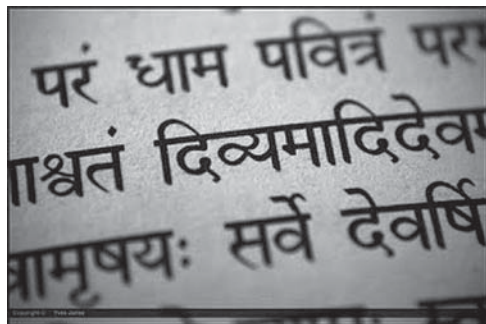 परं धाम पवित्रं पर
ाश्वतं दिव्यमादिदेवम
त्रामृषयः सर्वे देवर्षि
Copyright © Yves Jorna